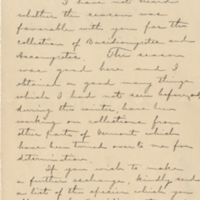 I have not heard
whether the season was
favorable with you for the
collection of Basidiomycetes and
Ascomycetes. This season
was good here and I
obtained a good many things
which I had not seen before, and
during this winter, have been
working on collections from
other parts of Vermont which
have been turned over to me for
determination.
If you wish to make
a further exchange, kindly send
a list of the species which you